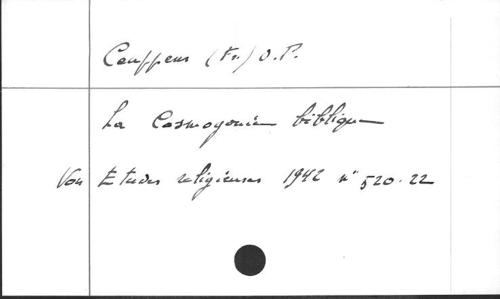 Ceuppens (Fr.) O.P.
La Cosmogonie biblique
Voir Etudes religieuses 1942 n° 520-22